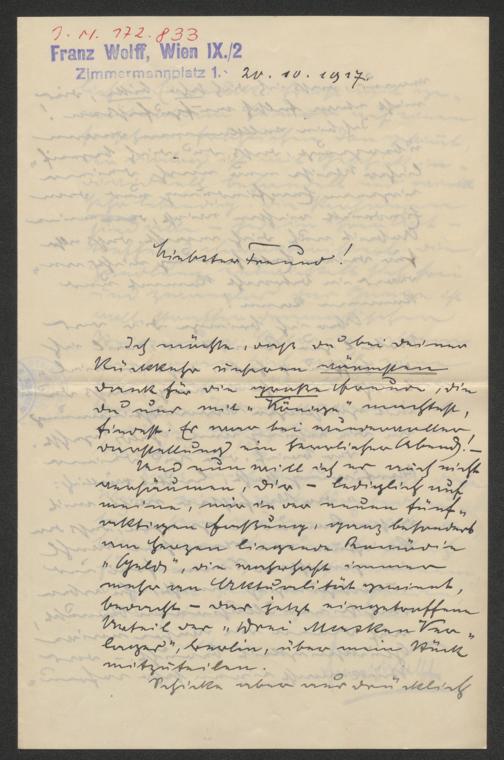 J. N. 172.833
Franz Wolff, Wien IX./2
Zimmermannplatz 1.
20.10.1917.
Liebster Freund!
Ich möchte, daß du bei deiner
Rückkehr unseren wärmsten
Dank für die große Freude, die
du uns mit "Könige" machtest,
findest. Es war bei wundervoller
Darstellung ein herrlicher Abend! –
Und nun will ich es auch nicht
versäumen, dir – lediglich auf
meine, mir in der neuen fünf-
aktigen Fassung, ganz besonders
am Herzen liegende Komödie
"Geld", die wahrhaft immer
mehr an Aktualität gewinnt,
bedacht – das jetzt eingetroffene
Urteil der "Drei Masken Ver-
lages", Berlin, über mein Stück
mitzuteilen.
Schicke aber ausdrücklich